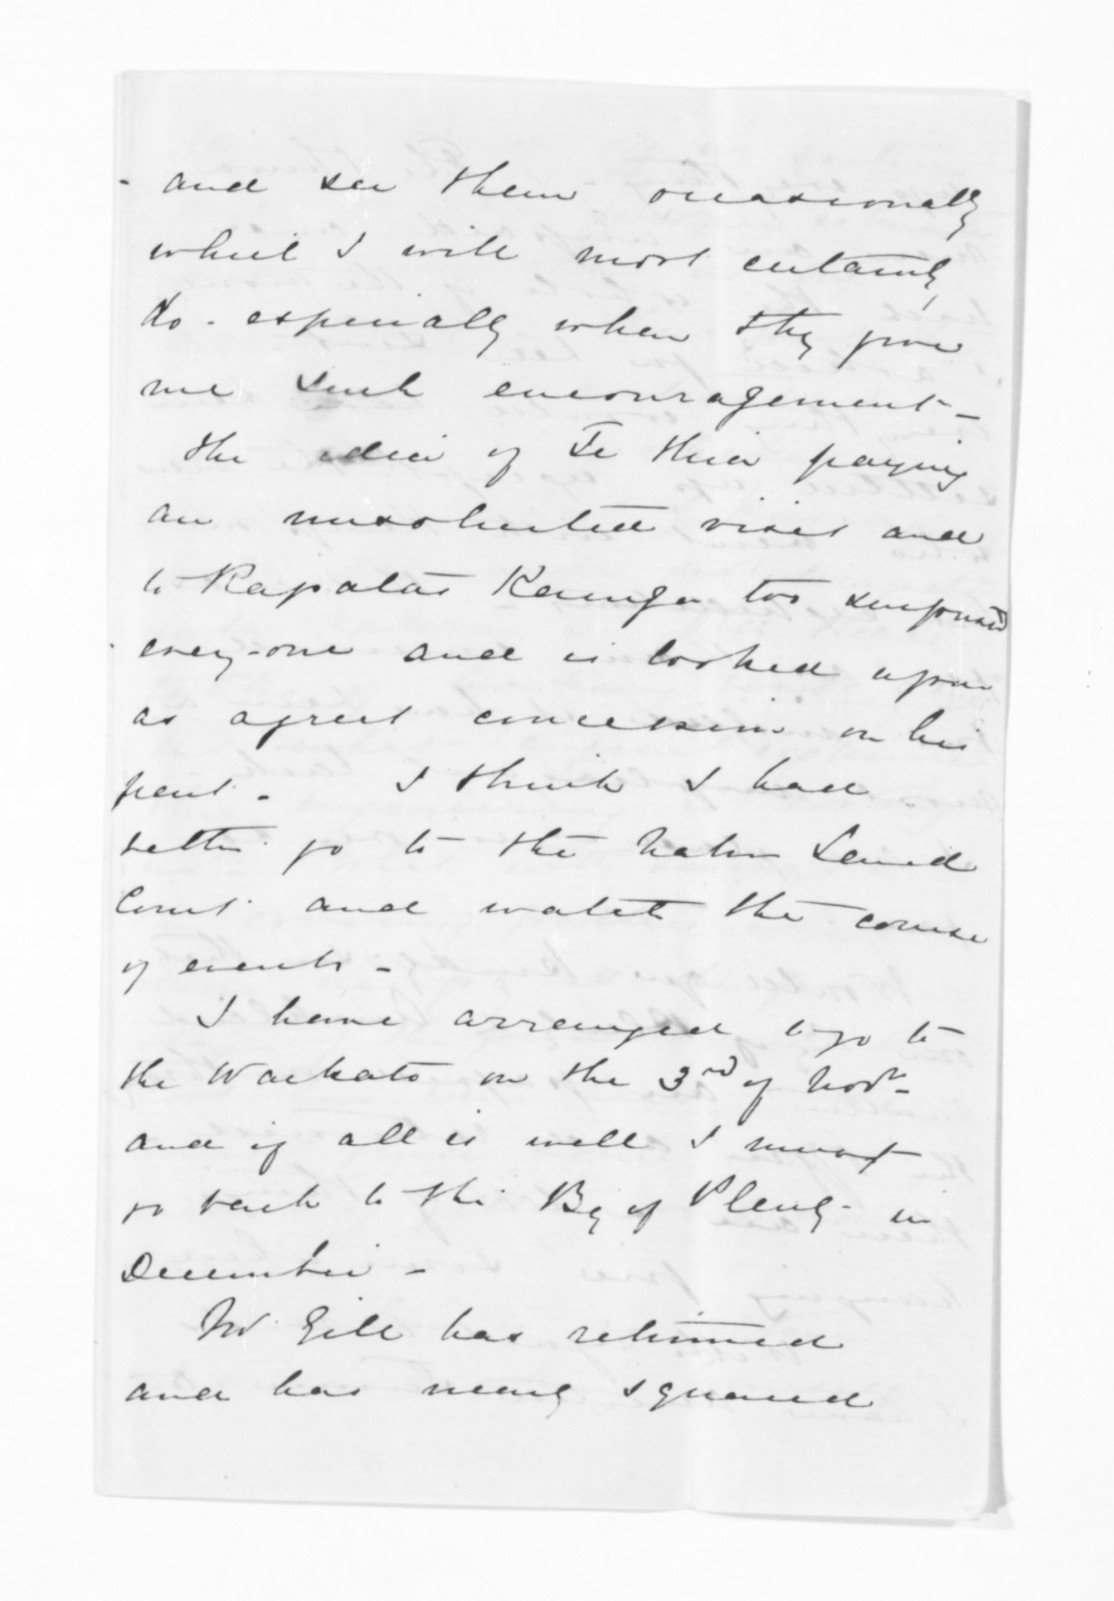 and see them occasionally
which I will most certainly
do. especially when they give
me such encouragement -
the idea of Te Hira paying
an unsolicited visit and
to Rapatas Kainga too surprised
every-one and is looked upon
as a great concession on his
part. I think I had
better go to the Native Land
Court and watch the course
of events -
I have arranged to go to
the Waikato on the 3rd of Novr -
and if all is well I must
go back to the By of Plenty in
December -
Mr Gill has returned
and has nearly squared